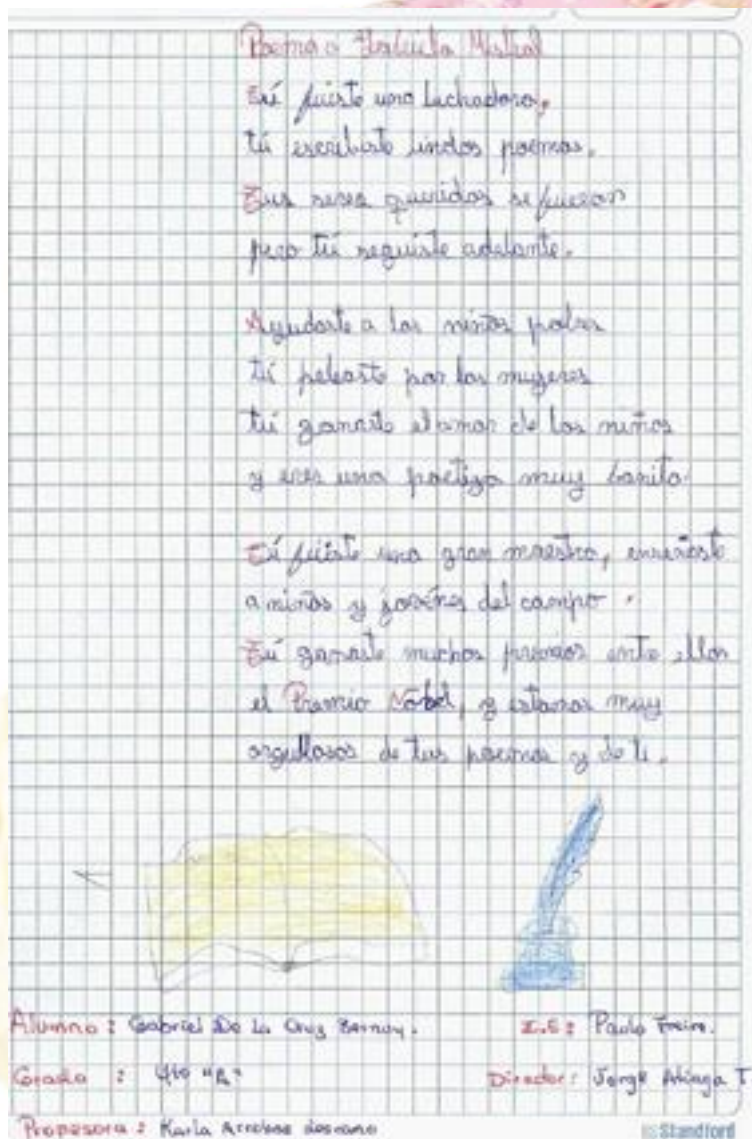 Poema a Gabriela Mistral
Tú fuiste una luchadora,
tú escribiste lindos poemas.
Tus seres queridos se fueron
pero tú seguiste adelante.
Ayudaste a los niños pobres
tú peleaste por las mugeres
tú ganaste el amor de los niños
y eres una poetiza muy bonita.
Tú fuiste una gran maestra, enseñaste
a niños y jovénes del campo.
Tú ganaste muchos premios entre ellos
el Premio Nobel, y estamos muy
orgullosos de tus poemas y de ti.
Alumno: Gabriel De La Cruz Bernuy.
I.E: Paulo Freire.
Grado: 4to
Director: Jorge Aliaga T
Profesora: Karla
Standford